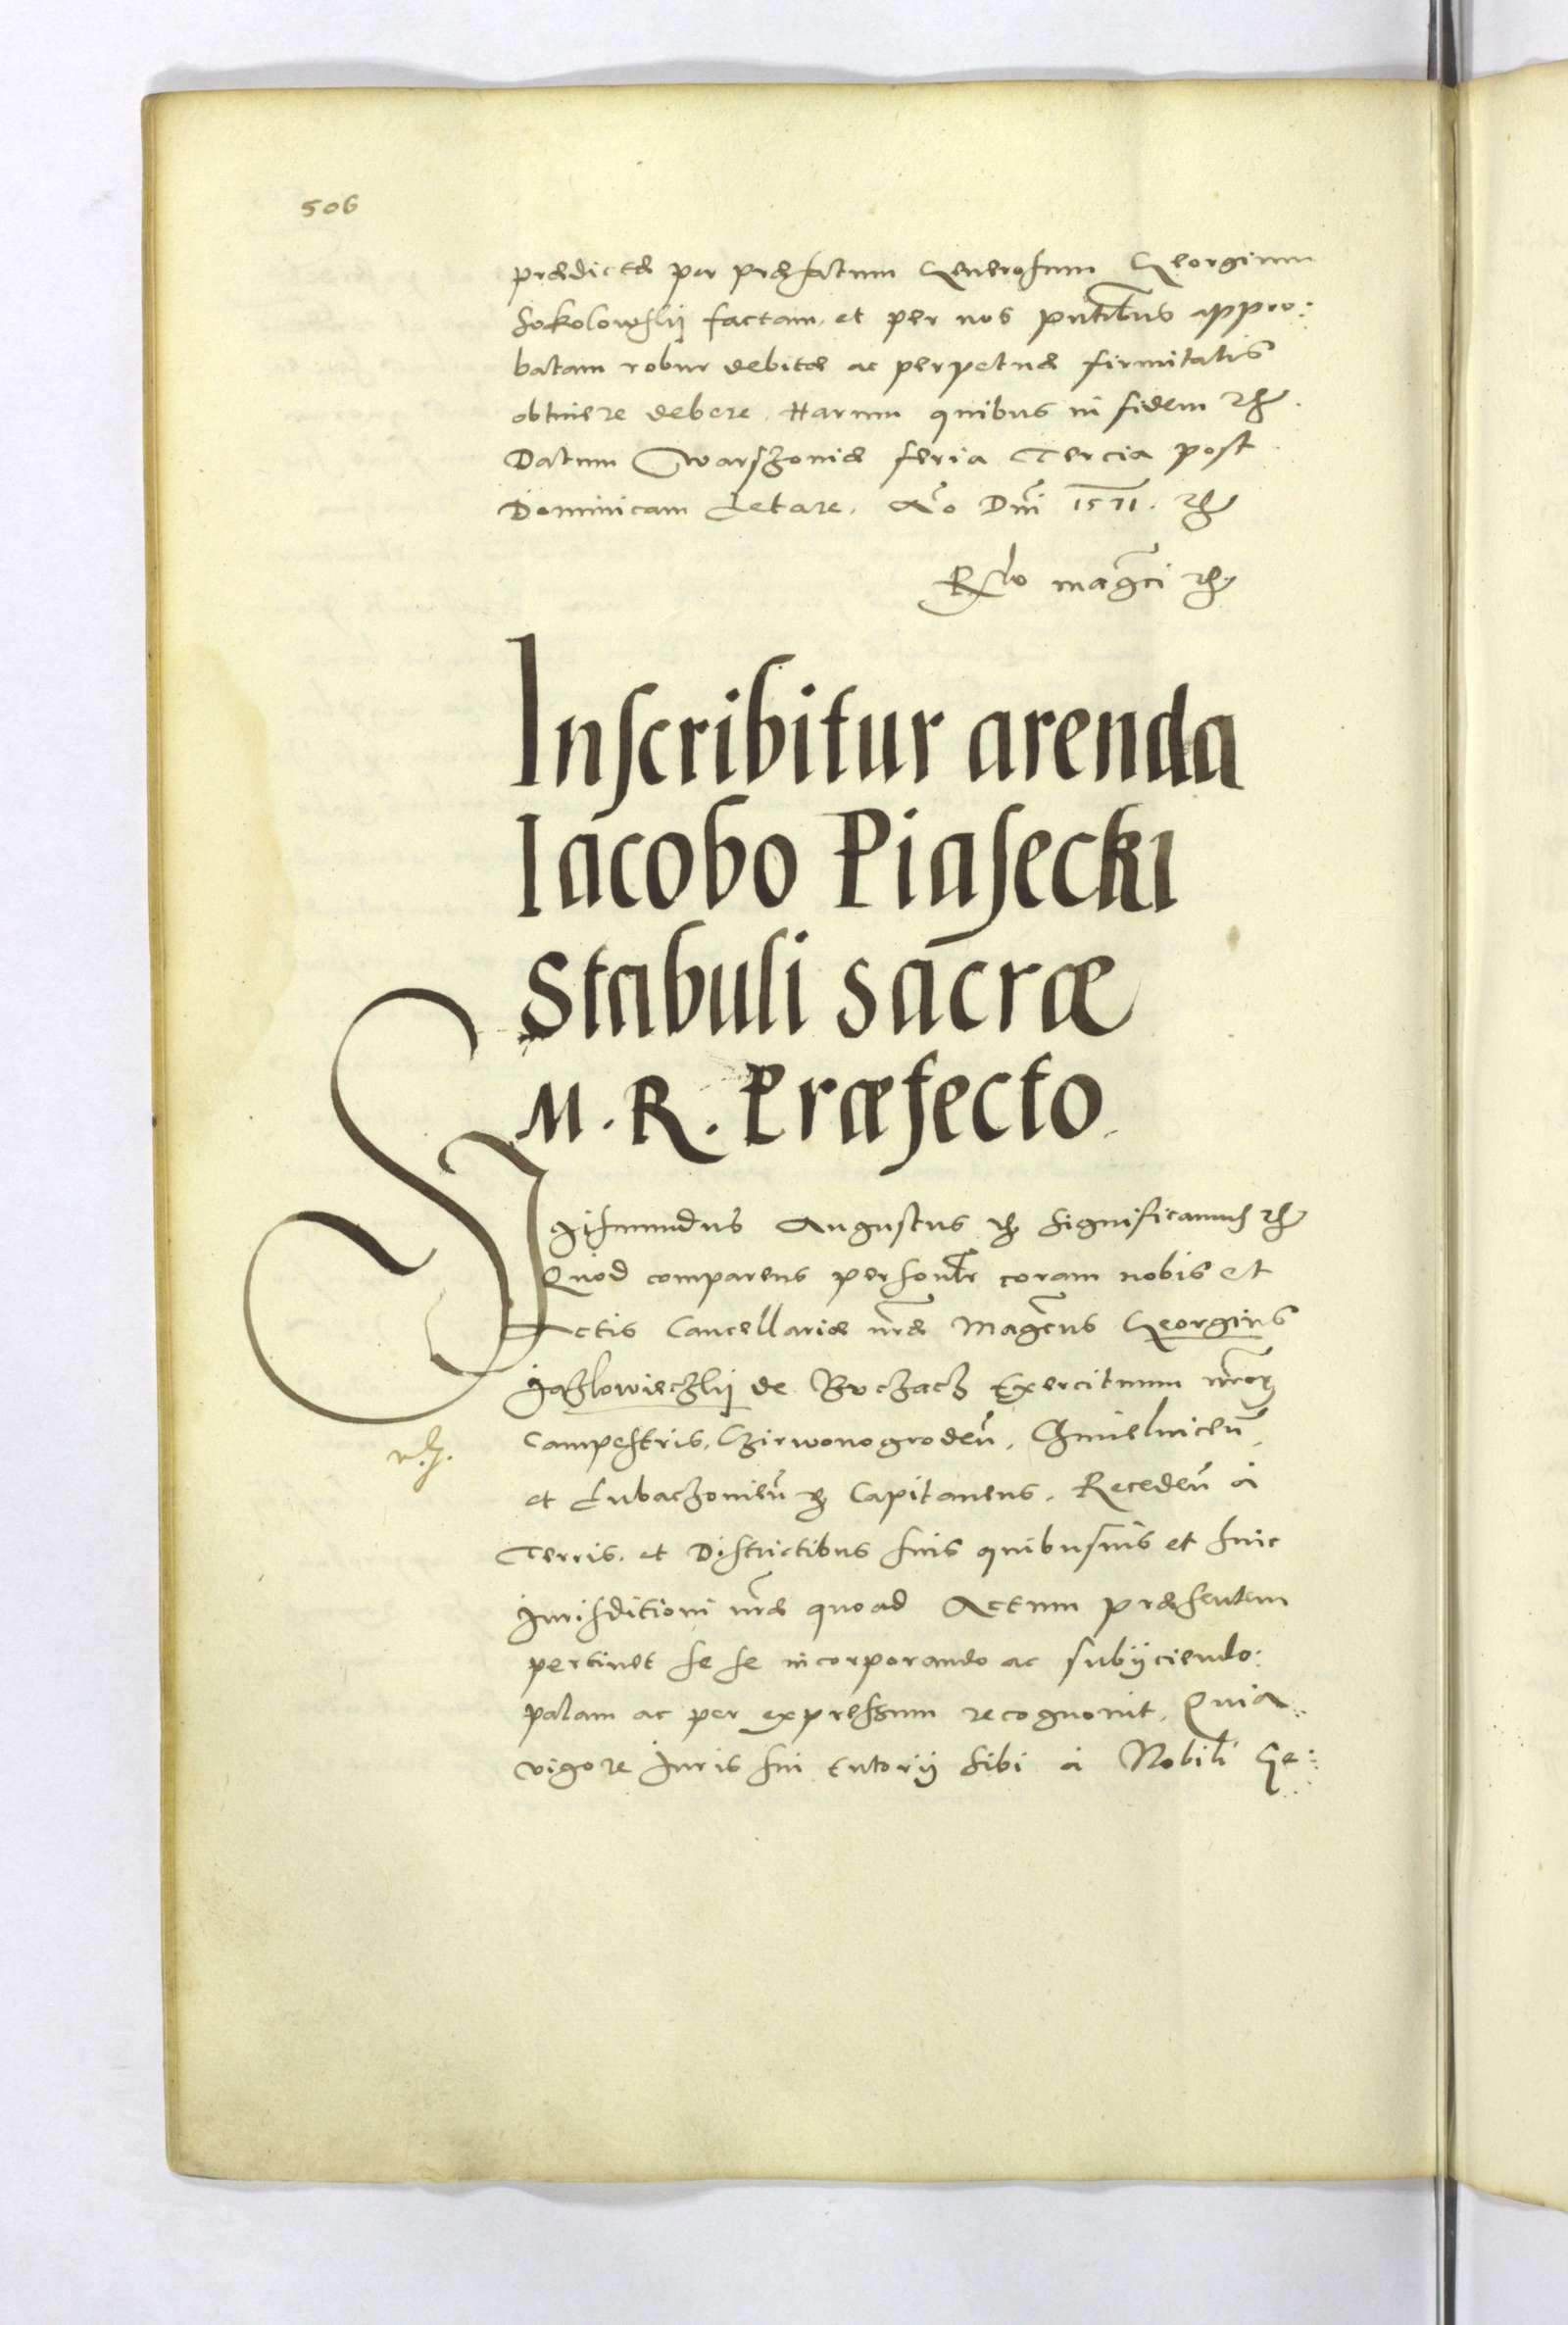 506
prædictæ per præfatum Generosum Georgium
Sokolowskij factam, et per nos pñtibus appro:
batam robur debitæ ac perpetuæ firmitatis
obtinere debere. Harum quibus in fidem etc.
Datum Warszoniæ feria Tercia post
Dominicam Letare. Año Dñi 1571. etc.
Rlo magci etc.
Inscribitur arenda
Iacobo Piasecki
Stabuli sacræ
M. R. Præfecto.
Sigismundus Augustus etc. Significamus etc.
Quod comparens personlr coram nobis et
Actis Cancellariæ nræ Magcus Georgius
Jazlowieczkij de Buczacz Exercituum nror
Campestris, Czirwonogrodeñ, Chmielniceñ,
et Lubaczonieñ etc. Capitaneus. Recedeñ à
Terris, et Districtibus suis quibusuis et huic
Jurisditioni nræ quoad Actum præsentem
pertinet se se incorporando ac subijciendo:
palam ac per expressum recognouit, Quia
vigore Juris sui tutorij sibi à Nobili Ge: